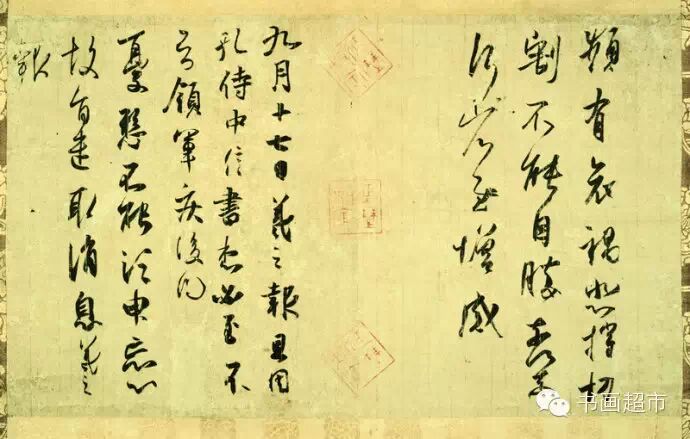 頻有哀禍悲摧切
割不能自勝奈何
奈何省慰增感
九月十七日羲之報且因
孔侍中信書想必至不
知領軍疾後問
憂懸不能須臾忘心
故旨遣取消息羲之
報
书画超市